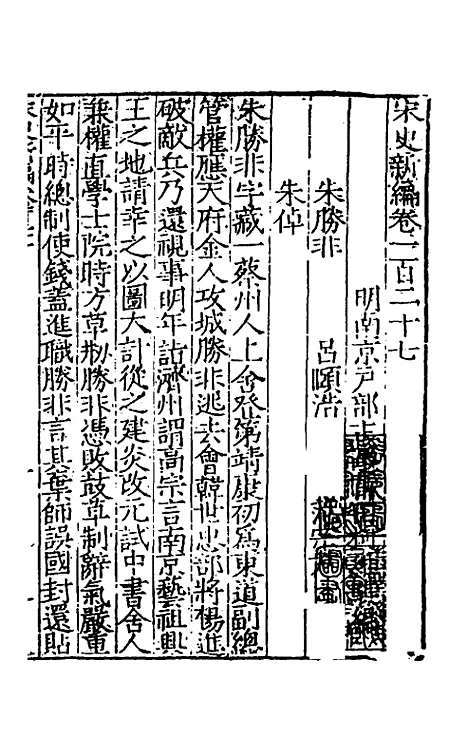 宋史新編卷一百二十七
明南京戶部
朱勝非　呂頤浩
朱倬
朱勝非字藏一蔡州人上舍登第靖康初爲東道副總
管權應天府金人攻城勝非逃去會韓世忠部將楊進
破敵兵乃還視事明年詣濟州謂高宗言南京藝祖興
王之地請幸之以圖大計從之建炎改元試中書舍人
兼權直學士院時方草刱勝非憑敗鼓草制辭氣嚴重
如平時總制使錢蓋進職勝非言其棄師誤國封還貼